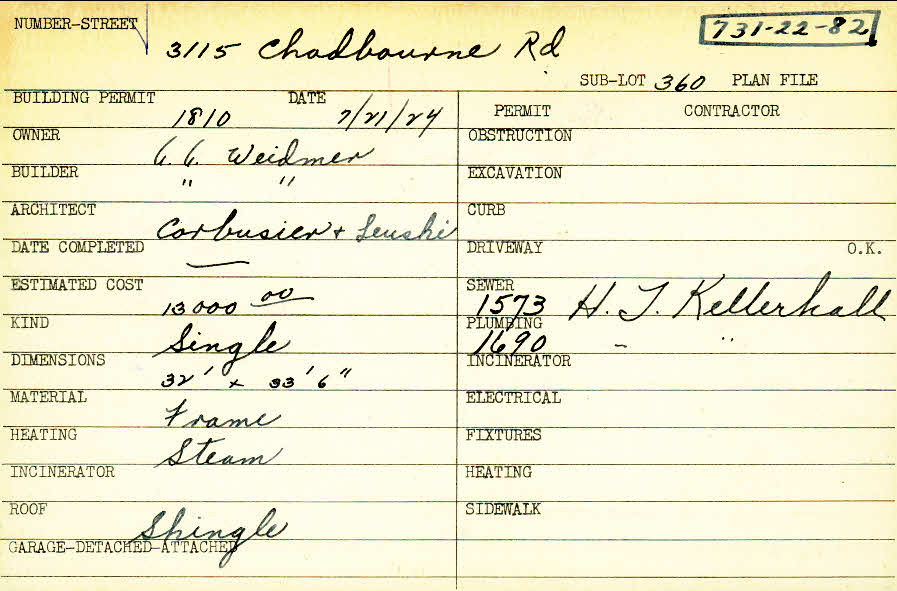 NUMBER-STREET
3115 Chadbourne Rd
731-22-82
SUB-LOT 360 PLAN FILE
BUILDING PERMIT DATE
1810 7/21/24
OWNER
A. A. Weidmer
BUILDER
" "
ARCHITECT
Corbusier + Lenski
DATE COMPLETED
—
ESTIMATED COST
13000 00
KIND
Single
DIMENSIONS
32' x 33' 6"
MATERIAL
Frame
HEATING
Steam
INCINERATOR
ROOF
Shingle
GARAGE-DETACHED-ATTACHED
PERMIT CONTRACTOR
OBSTRUCTION
EXCAVATION
CURB
DRIVEWAY O.K.
SEWER
1573 H. J. Kellerhall
PLUMBING
1690 " "
INCINERATOR
ELECTRICAL
FIXTURES
HEATING
SIDEWALK